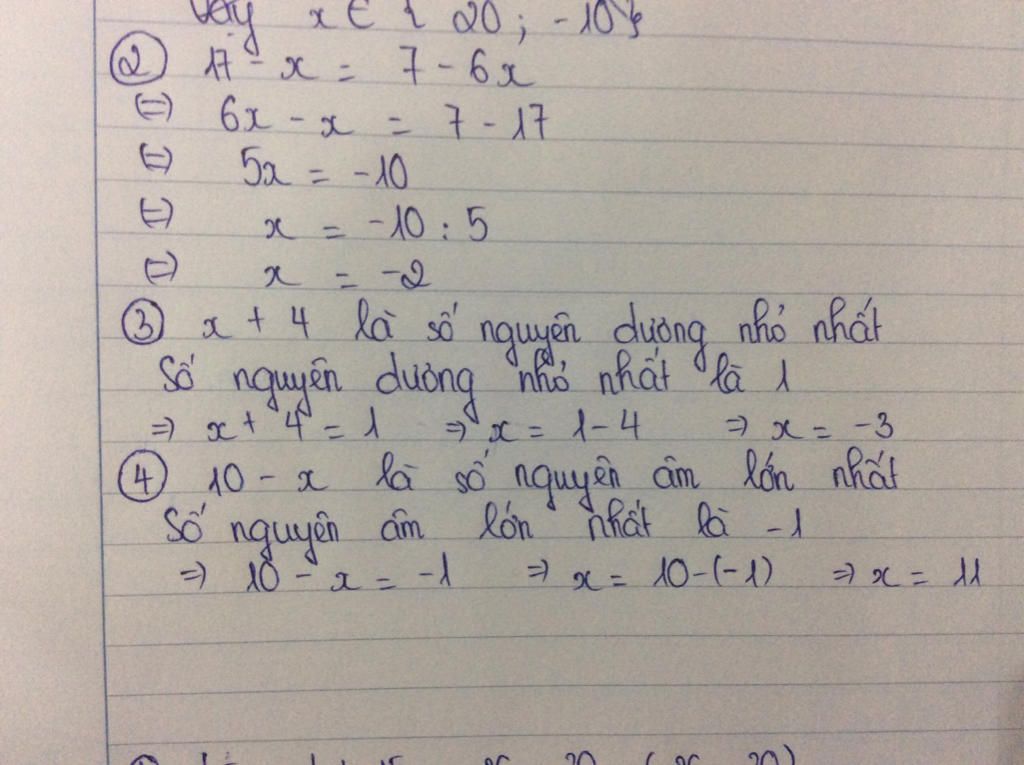 Vậy x ∈ { 20 ; -10}
② 17 - x = 7 - 6x
(=) 6x - x = 7 - 17
(=) 5x = -10
(=) x = -10 : 5
(=) x = -2
③ x + 4 là số nguyên dương nhỏ nhất
Số nguyên dương nhỏ nhất là 1
=> x + 4 = 1 => x = 1 - 4 => x = -3
④ 10 - x là số nguyên âm lớn nhất
Số nguyên âm lớn nhất là -1
=> 10 - x = -1 => x = 10 - (-1) => x = 11